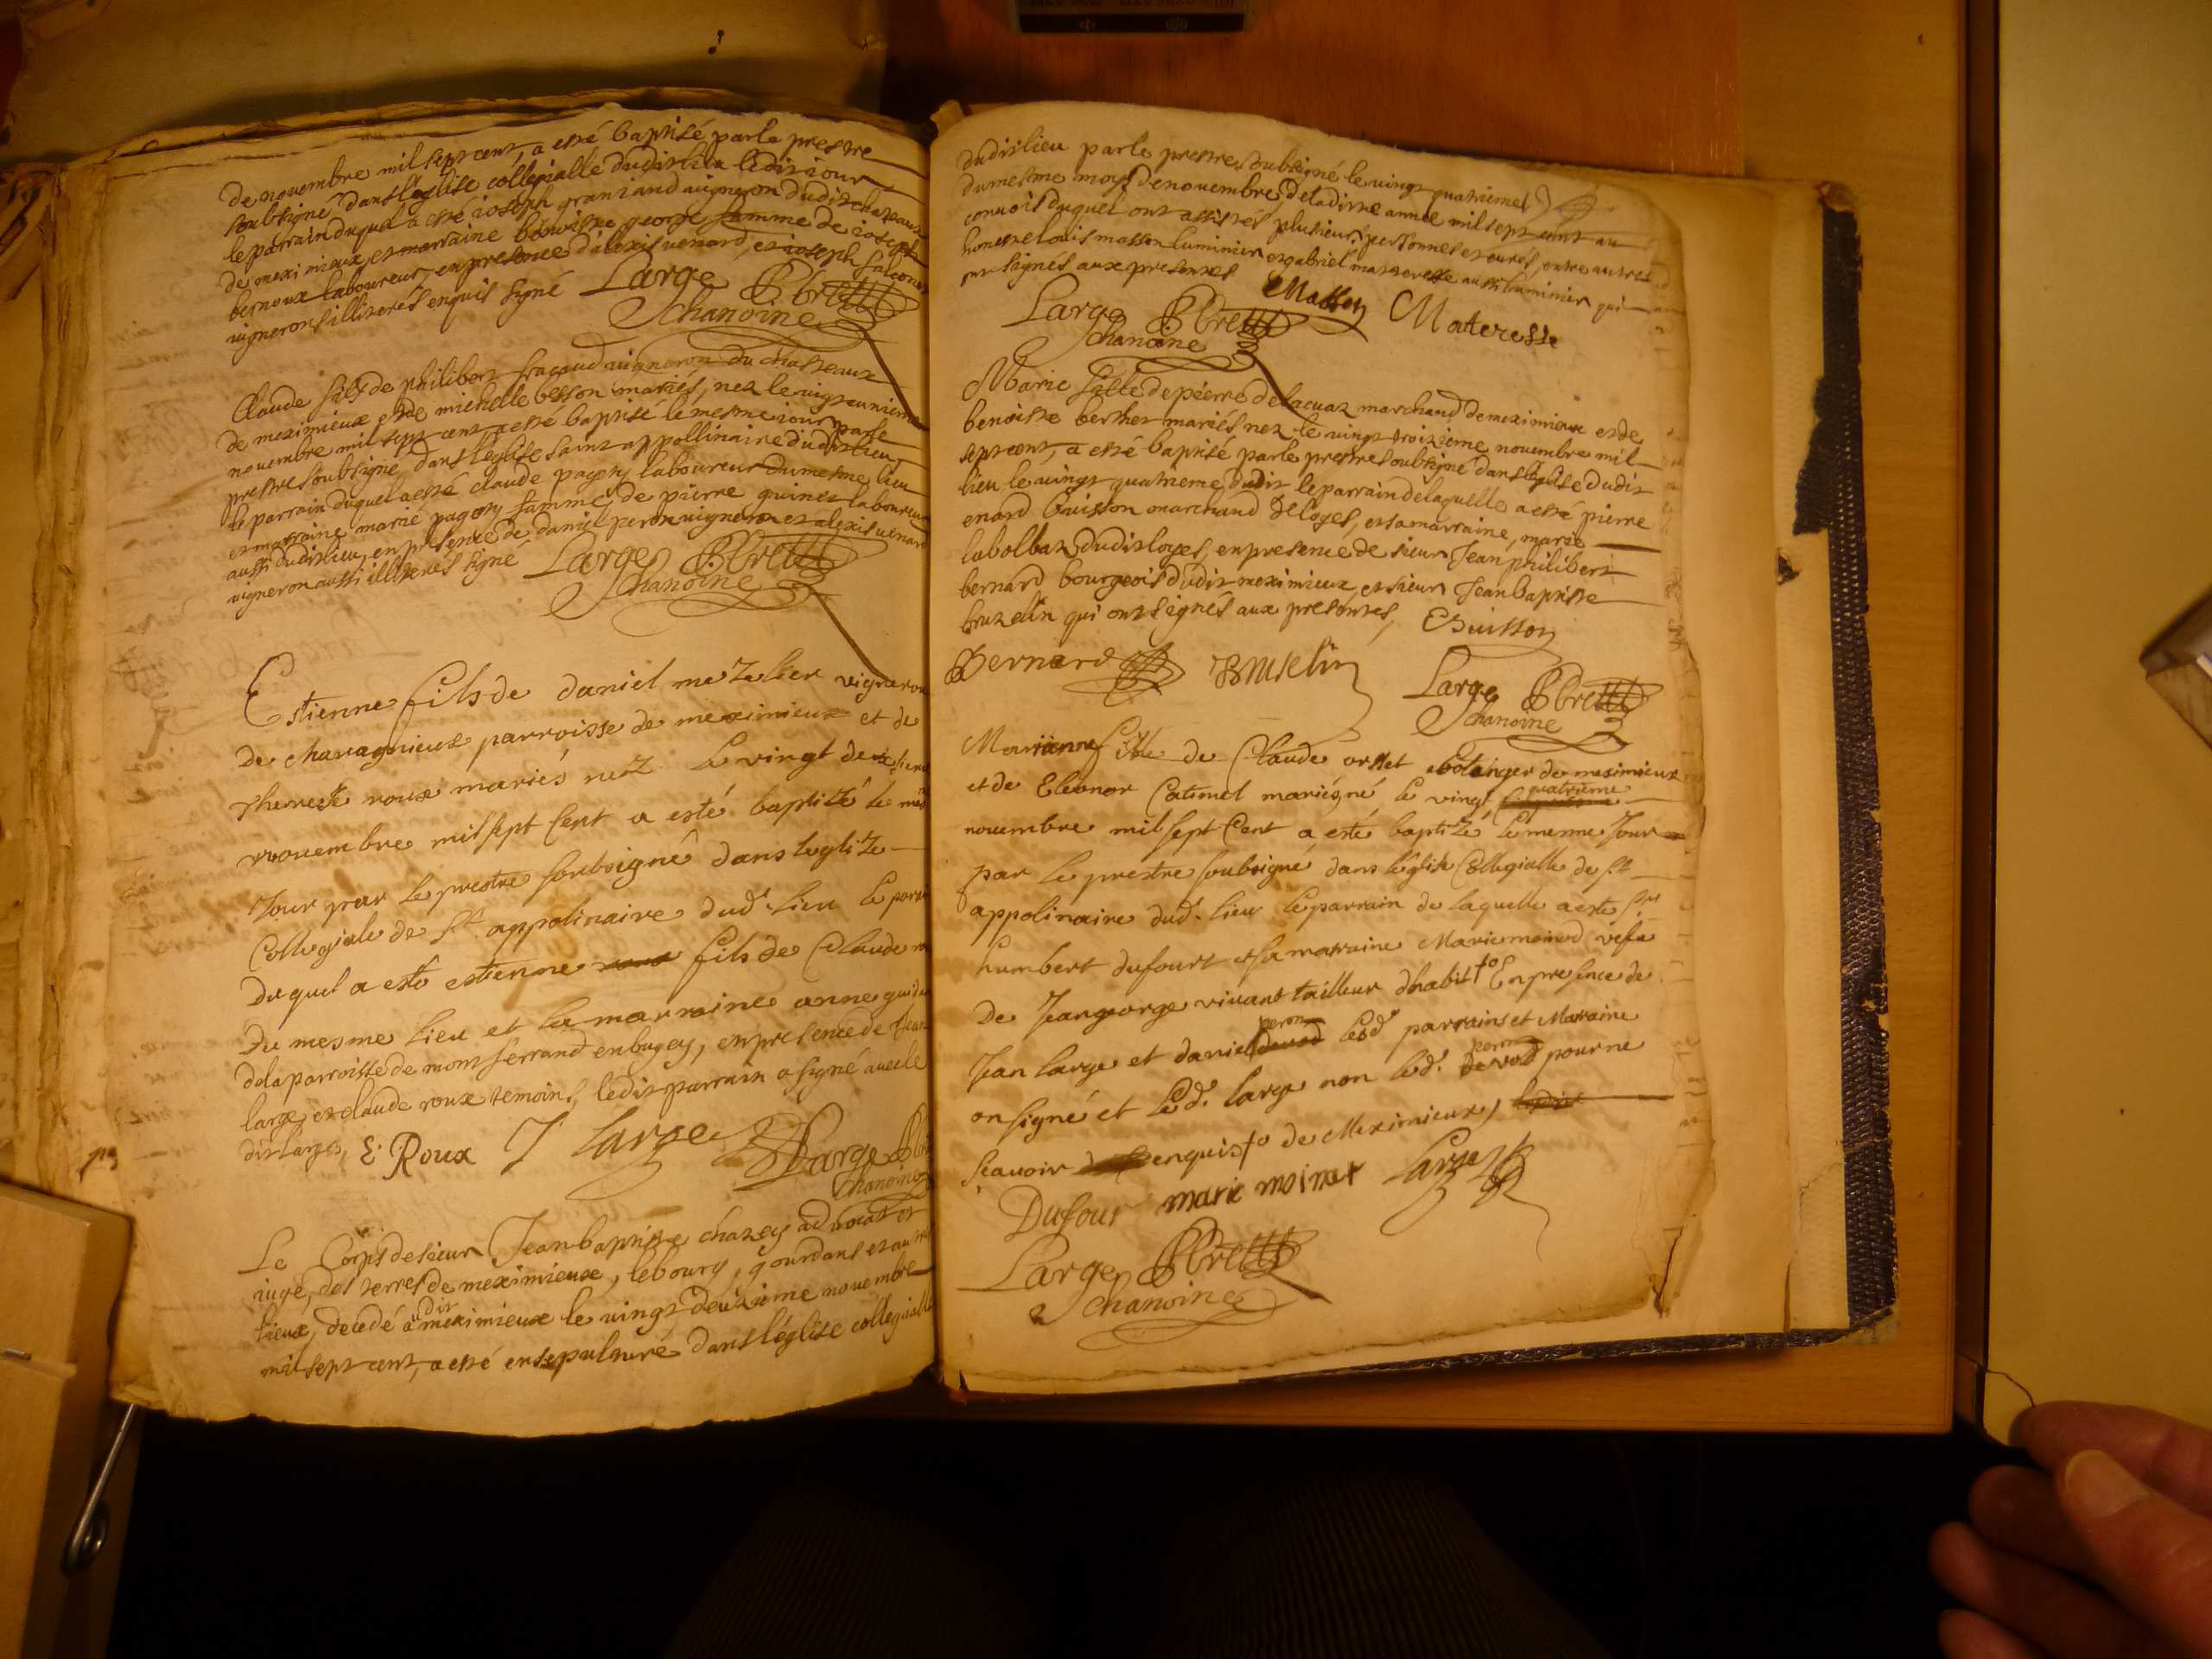 de novembre mil sept cent, a esté baptisé par le prestre
soubsigné dans l'église collégialle dudit lieu ledit jour
le parrain duquel a esté joseph graniand vigneron dudit chateaux
de meximieux, et marraine benoistre george famme de joseph
bernoux laboureur, en presence d'alexis venard, et joseph falconet
vignerons illiterés enquis signé Large Pbre
chanoine
Claude fils de philibert fracoud vigneron du chasteaux
de meximieux et de michelle besson mariés, nez le vigt unieme
novembre mil sept cent a esté baptisé le mesme jour par le
prestre soubsigné, dans l'église saint appollinaire dudit lieu
le parrain duquel a esté claude pagony laboureur du mesme lieu
et marraine marie pagony famme de pierre guinet laboureur
aussi dudit lieu, en presence de daniel peron vigneron et alexis venard
vigneron aussi illiterés signé Large Pbre
chanoine
Estienne fils de daniel mezelier vigneron
de chavagnieux parroisse de meximieux et de
therese roux mariés nez le vingt deuxieme
novembre mil sept cent a esté baptizé le mesme
Jour par le prestre soubsigné dans leglize
Collegiale de st. appolinaire dud. lieu le parrain
Duquel a esté estienne roux fils de Claude
Du mesme lieu et la marraine anne
de la parroisse de mont ferrand en bugey, en presence de Jean
large et claude roux temoins, ledit parrain a signé avec le
dit large, E. Roux J large Large Pbre
chanoine
Le Corps de sieur Jean baptiste chazey advocat et
juge, des terres de meximieux, le bourg, gourdans et autres
lieux, decedé audit meximieux le vingt deuxieme novembre
mil sept cent, a esté ensepulturé dans l'église collegialle
dudit lieu par le prestre soubsigné le vingt quatrieme
du mesme moys de novembre de laditte année mil sept cent au
convois duquel ont assistés plusieurs personnes et curés, entre autres
honeste louis masson luminier et gabriel materesse aussi luminier qui
ont signés aux presentes Masson Materesse
Large Pbre
chanoine
Marie fille de pierre delacuaz marchand de meximieux et de
benoiste berthet mariés nez le vingt troizieme novembre mil
sept cent, a esté baptisé par le prestre soubsigné dans l'église dudit
lieu le vingt quatrieme dudit le parrain de laquelle a esté pierre
enard buisson marchand de loyes, et sa marraine, marie
labolbaz dudit loyes, en presence de sieur Jean philibert
bernard bourgeois dudit meximieux et sieur Jean baptiste
bruzelin qui ont signés aux presentes, Buisson
Bernard Bruselin Large Pbre
chanoine
Marianne fille de Claude orset bolanger de meximieux
et de Eléonor Catimel mariés, né le vingt quatrieme
novembre mil sept Cent a esté baptizé le mesme Jour
par le prestre soubsigné dans leglise Collegialle de st
appolinaire dud. lieu le parrain de laquelle a esté sr
humbert dufourt et sa marraine Marie moined vefve
De Jean george vivant tailleur dhabit +o En presence de
Jean large et daniel peron lesd. parrains et Marraine
on signé et led. large non led. peron pour ne
scavoir enquis +o de Meximieux,
Dufour marie moinet Large
Large Pbre
chanoine